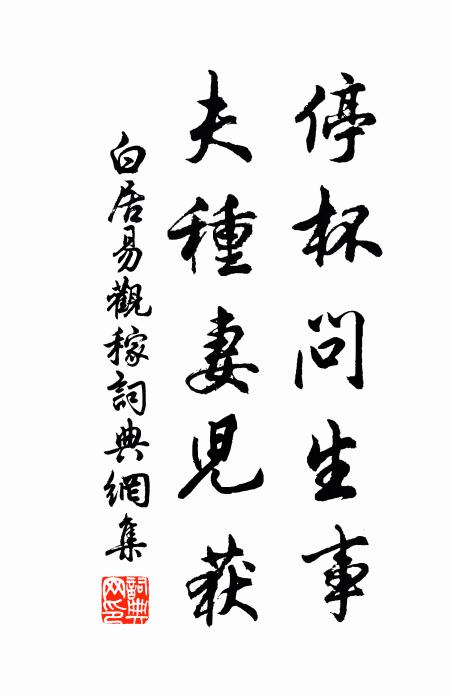 停杯問生事
夫種妻兒获
白居易觀稼詞典網集
詞典网印